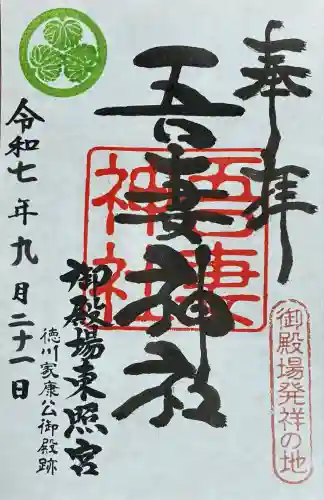 奉拝
御殿場発祥の地
吾妻神社
吾妻神社
御殿場東照宮
徳川家康公御殿跡
令和七年九月二十一日